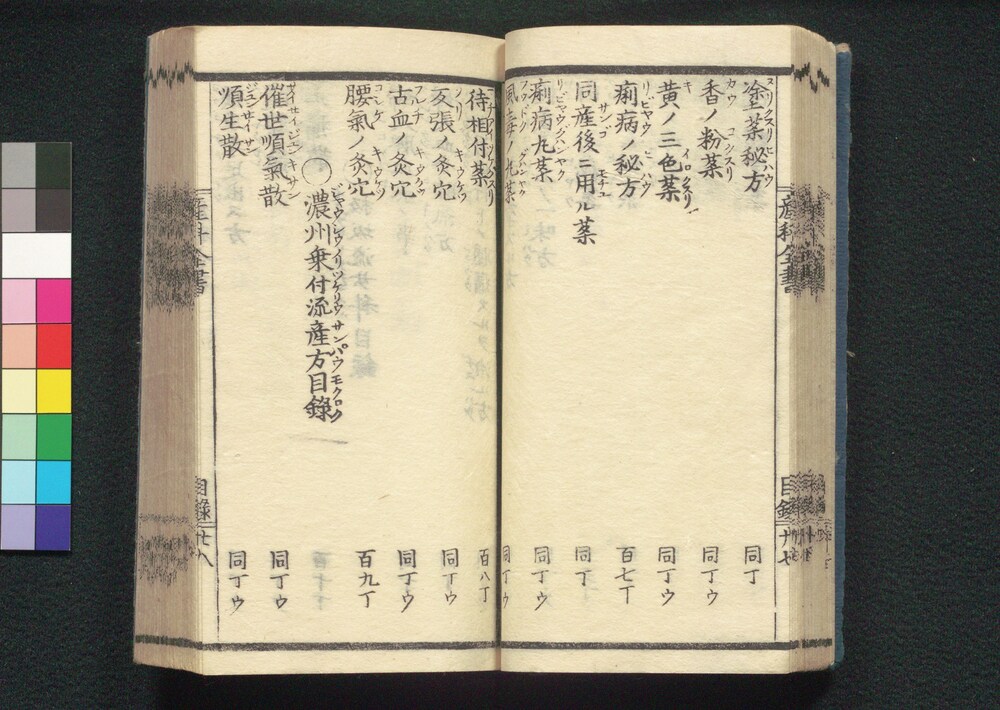 塗薬秘方 同丁
香ノ粉薬 同丁ウ
黄ノ三色薬 同丁ウ
痢病ノ秘方 百七丁
同産後ニ用ル薬 同丁
痢病丸薬 同丁ウ
風毒ノ丸薬 同丁ウ
待相付薬 百八丁
反張ノ灸穴 同丁ウ
古血ノ灸穴 同丁ウ
腰氣ノ灸穴 百九丁
○濃州乗付流産方目録
催世順氣散 同丁ウ
順生散 同丁ウ
産科全書 目録 廿七
産科全書 目録 廿八